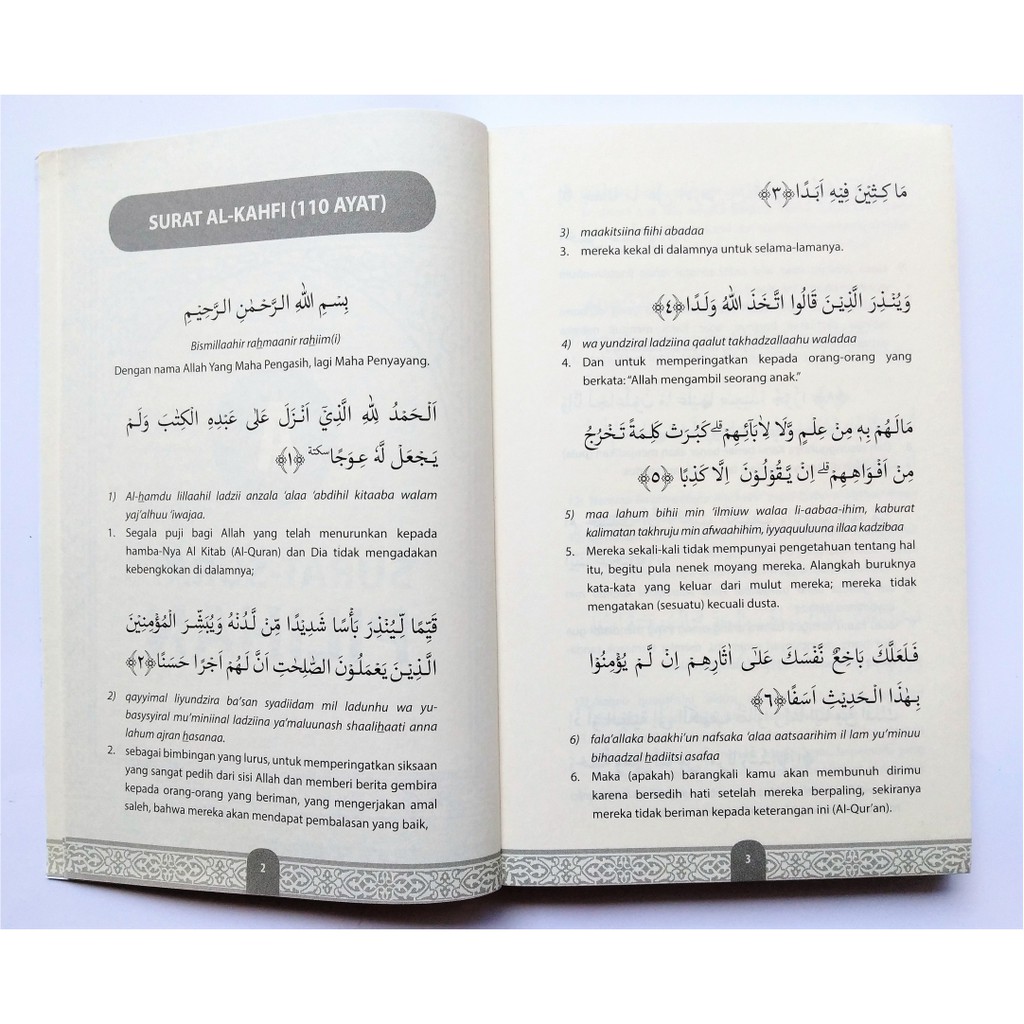 SURAT AL-KAHFI (110 AYAT)
بِسْمِ اللهِ الرَّحْمٰنِ الرَّحِيْمِ
Bismillaahir rahmaanir rahiim(i)
Dengan nama Allah Yang Maha Pengasih, lagi Maha Penyayang.
اَلْحَمْدُ لِلّٰهِ الَّذِيْٓ اَنْزَلَ عَلٰى عَبْدِهِ الْكِتٰبَ وَلَمْ
يَجْعَلْ لَّهٗ عِوَجًا سكتة ﴿١﴾
1) Al-hamdu lillaahil ladzii anzala 'alaa 'abdihil kitaaba walam
yaj'alhuu 'iwajaa.
1. Segala puji bagi Allah yang telah menurunkan kepada
hamba-Nya Al Kitab (Al-Quran) dan Dia tidak mengadakan
kebengkokan di dalamnya;
قَيِّمًا لِّيُنْذِرَ بَأْسًا شَدِيْدًا مِّنْ لَّدُنْهُ وَيُبَشِّرَ الْمُؤْمِنِيْنَ
الَّذِيْنَ يَعْمَلُوْنَ الصّٰلِحٰتِ اَنَّ لَهُمْ اَجْرًا حَسَنًا ﴿٢﴾
2) qayyimal liyundzira ba'san syadiidam mil ladunhu wa yu-
basysyiral mu'miniinal ladziina ya'maluunash shaalihaati anna
lahum ajran hasanaa.
2. sebagai bimbingan yang lurus, untuk memperingatkan siksaan
yang sangat pedih dari sisi Allah dan memberi berita gembira
kepada orang-orang yang beriman, yang mengerjakan amal
saleh, bahwa mereka akan mendapat pembalasan yang baik,
2
مَا كِثِيْنَ فِيْهِ اَبَدًا ﴿٣﴾
3) maakitsiina fiihi abadaa
3. mereka kekal di dalamnya untuk selama-lamanya.
وَيُنْذِرَ الَّذِيْنَ قَالُوا اتَّخَذَ اللهُ وَلَدًا ﴿٤﴾
4) wa yundziral ladziina qaalut takhadzallaahu waladaa
4. Dan untuk memperingatkan kepada orang-orang yang
berkata: "Allah mengambil seorang anak."
مَالَهُمْ بِهٖ مِنْ عِلْمٍ وَّلَا لِاٰبَآئِهِمْ ۗ كَبُرَتْ كَلِمَةً تَخْرُجُ
مِنْ اَفْوَاهِهِمْ ۗ اِنْ يَّقُوْلُوْنَ اِلَّا كَذِبًا ﴿٥﴾
5) maa lahum bihii min 'ilmiuw walaa li-aabaa-ihim, kaburat
kalimatan takhruju min afwaahihim, iyyaquuluuna illaa kadzibaa
5. Mereka sekali-kali tidak mempunyai pengetahuan tentang hal
itu, begitu pula nenek moyang mereka. Alangkah buruknya
kata-kata yang keluar dari mulut mereka; mereka tidak
mengatakan (sesuatu) kecuali dusta.
فَلَعَلَّكَ بَاخِعٌ نَّفْسَكَ عَلٰٓى اٰثَارِهِمْ اِنْ لَّمْ يُؤْمِنُوْا
بِهٰذَا الْحَدِيْثِ اَسَفًا ﴿٦﴾
6) fala'allaka baakhi'un nafsaka 'alaa aatsaarihim il lam yu'minuu
bihaadzal hadiitsi asafaa
6. Maka (apakah) barangkali kamu akan membunuh dirimu
karena bersedih hati setelah mereka berpaling, sekiranya
mereka tidak beriman kepada keterangan ini (Al-Qur'an).
3